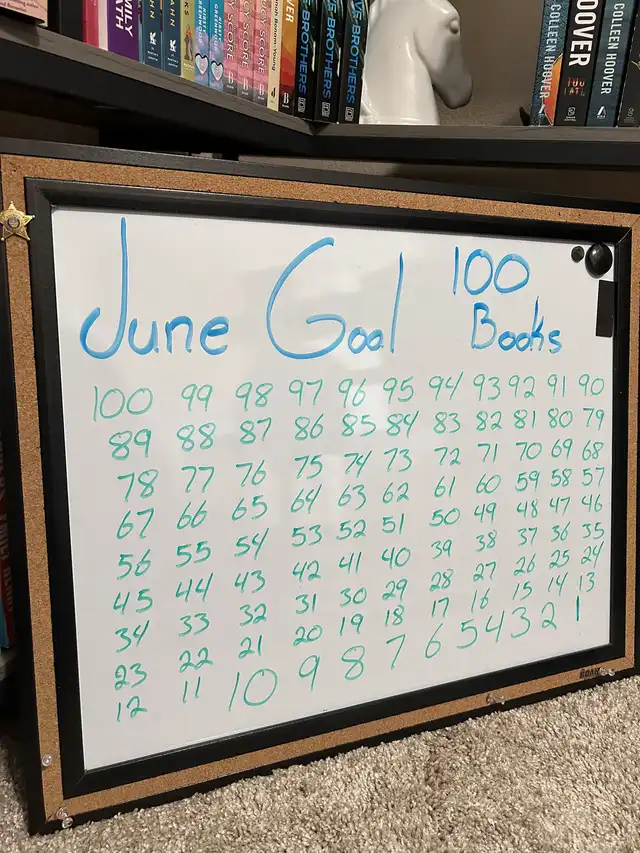 MILY
ATH
AHN
AHN
KIRSTY GREENWOOD
CY SCORE
CY SCORE
CY SCORE
Hannah Bonam-Young
VE-BROTHERS
VE-BROTHERS
VE-BROTHERS
COLLEEN HOOVER
HOOVER
COLLEEN HOOVER
June Goal 100 Books
100 99 98 97 96 95 94 93 92 91 90
89 88 87 86 85 84 83 82 81 80 79
78 77 76 75 74 73 72 71 70 69 68
67 66 65 64 63 62 61 60 59 58 57
56 55 54 53 52 51 50 49 48 47 46
45 44 43 42 41 40 39 38 37 36 35
34 33 32 31 30 29 28 27 26 25 24
23 22 21 20 19 18 17 16 15 14 13
12 11 10 9 8 7 6 5 4 3 2 1